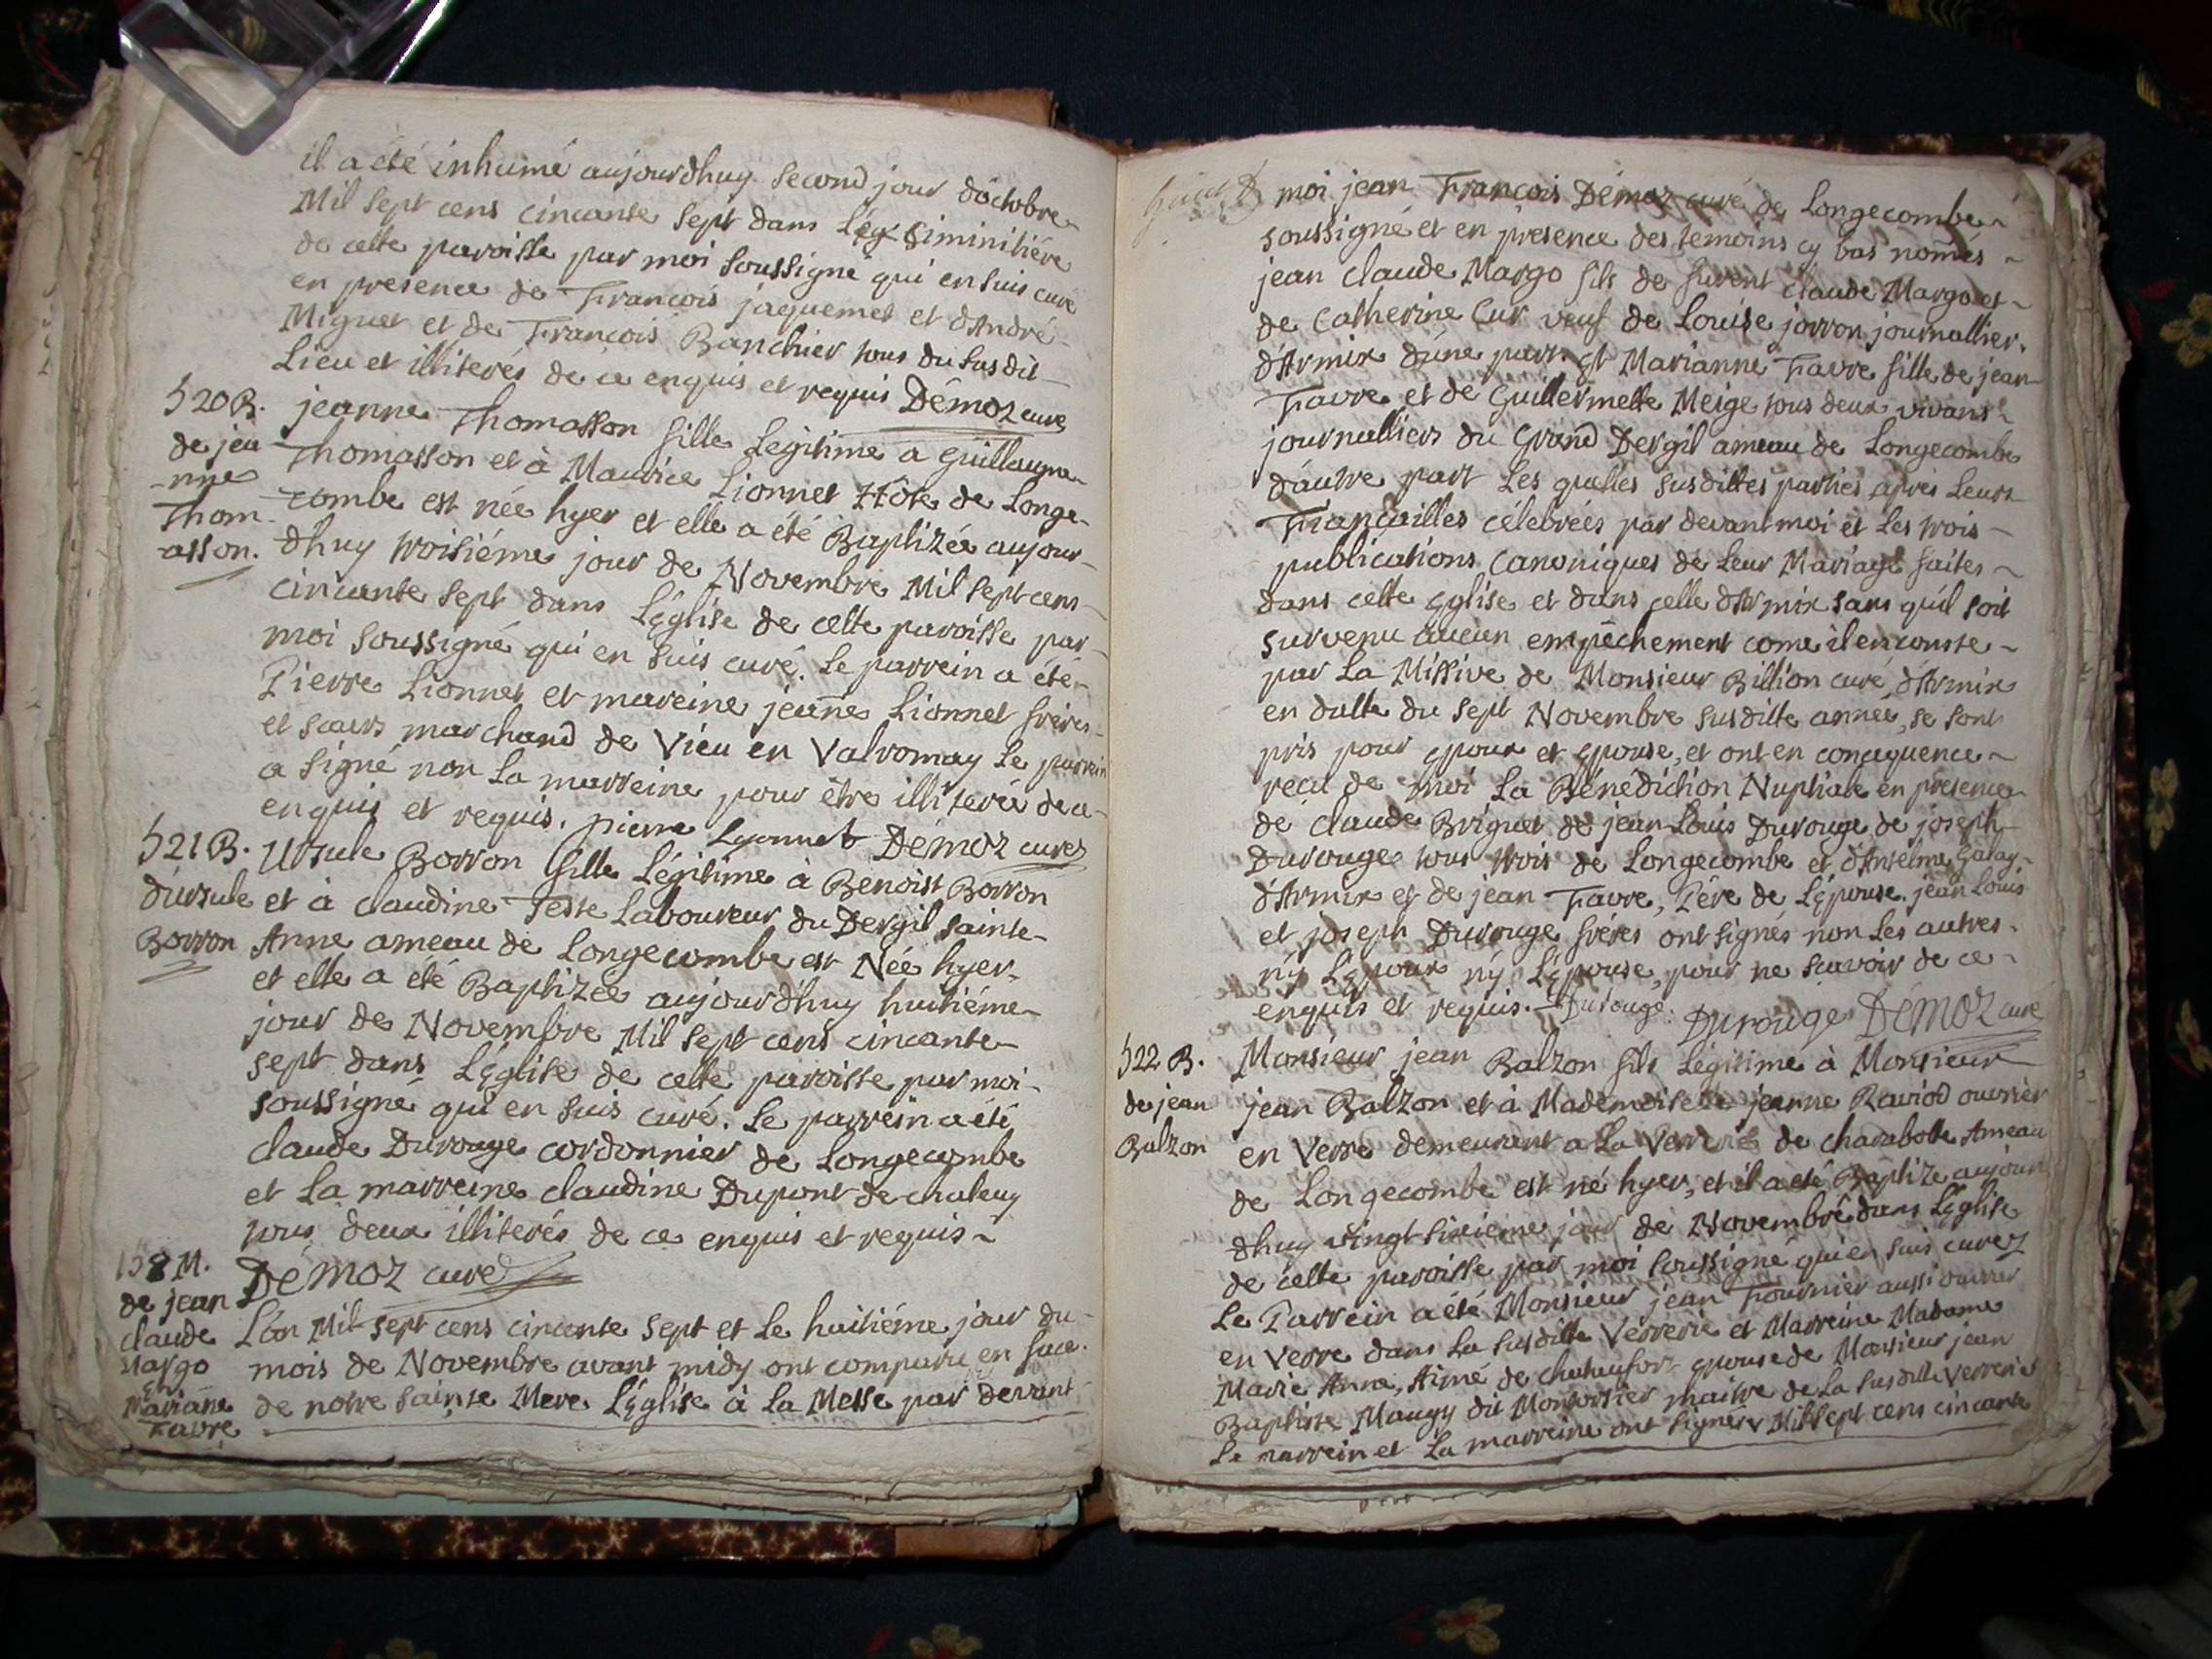 il a été inhumé aujourdhuy second jour d'octobre
Mil sept cens cincante sept dans Lég Siminitiére
de cette paroisse par moi soussigné qui en suis curé
en presence de François jaquemet et d'André
Miguet et de François Banchier tous du susdit
Lieu et illiterés de ce enquis et requis Démoz curé
520 B.
de jea
-nne
Thom
-asson.
jeanne Thomasson fille Légitime a Guillaume
Thomasson et à Maurice Lionnet Hôte de Longe-
combe est née hyer et elle a été Baptizée aujour-
dhuy troisiéme jour de Novembre Mil sept cens
cincante sept dans L'église de cette paroisse par
moi soussigné qui en suis curé. Le parrein a été
Pierre Lionnet et mareine jeanne Lionnet fréres
et soeurs marchand de Vieu en Valromay Le parrein
a signé non La marreine pour être illiterée de ce
enquis et requis. pierre Lyonnet Démoz curez
521 B.
d'ursule
Borron
Ursule Borron fille Légitime à Benoist Borron
et à claudine Teste Laboureur du Dergil sainte-
Anne ameau de Longecombe est Née hyer
et elle a été Baptizée aujourd'huy huitiéme
jour de Novembre Mil sept cens cincante
sept dans L'église de cette paroisse par moi
soussigné qui en suis curé. Le parrein a été
claude Durouge cordonnier de Longecombe
et La marreine claudine Dupont de chaley
tous deux illiterés de ce enquis et requis
Démoz curé
158 M.
de jean
claude
Margo
et
Marianne
Favre
L'an Mil sept cens cincante sept et Le huitiéme jour du
mois de Novembre avant midy ont comparu en face
de notre sainte Mere L'église à La Messe par devant
moi jean François Démoz curé de Longecombe
soussigné et en presence des temoins cy bas només
jean claude Margo fils de furent claude Margo et
de Catherine Cur veuf de Louise jorron journallier
d'Armix d'une part et Marianne Favre fille de jean
Favre et de Guillermette Meige tous deux vivans
journalliers du Grand Dergil ameau de Longecombe
d'autre part Les quelles susdittes parties aprés Leurs
Fiançailles célebrées par devant moi et Les trois
publications canoniques de Leur Mariage faites
dans cette église et dans celle d'Armix sans qu'il soit
survenu aucun empêchement come il en conste
par La Missive de Monsieur Billion curé d'Armix
en datte du sept Novembre susditte année, se sont
pris pour époux et épouse, et ont en conçequence
reçu de moi La Bénédiction Nuptiale en presence
de claude Briguet de jean Louis Durouge de joseph
Durouge tous trois de Longecombe et d'Anselme Galay
d'Armix et de jean Favre, Pére de L'épouse. jean Louis
et joseph Durouge fréres ont signés non Les autres
ny L'époux ny L'épouse, pour ne sçavoir de ce
enquis et requis. Durouge. Durouge Démoz curé
522 B.
de jean
Balzon
Monsieur jean Balzon fils Légitime à Monsieur
jean Balzon et à Mademoiselle jeanne Raviod ouvrier
en Verre demeurant a La Verrerie de charabotte Ameau
de Longecombe est né hyer, et il a été Baptizé aujour
dhuy vingt-sixieme jour de Novembre dans L'église
de cette paroisse par moi soussigné qui en suis curez
Le Parrein a été Monsieur jean Fournier aussi ouvrier
en Verre dans La susditte Verrerie et Marreine Madame
Marie Anne, Aimé de chateaufort épouse de Monsieur jean
Baptiste Maugy dit Montortier maitre de La susditte verrerie
Le parrein et La marreine ont signés Mil sept cens cincante